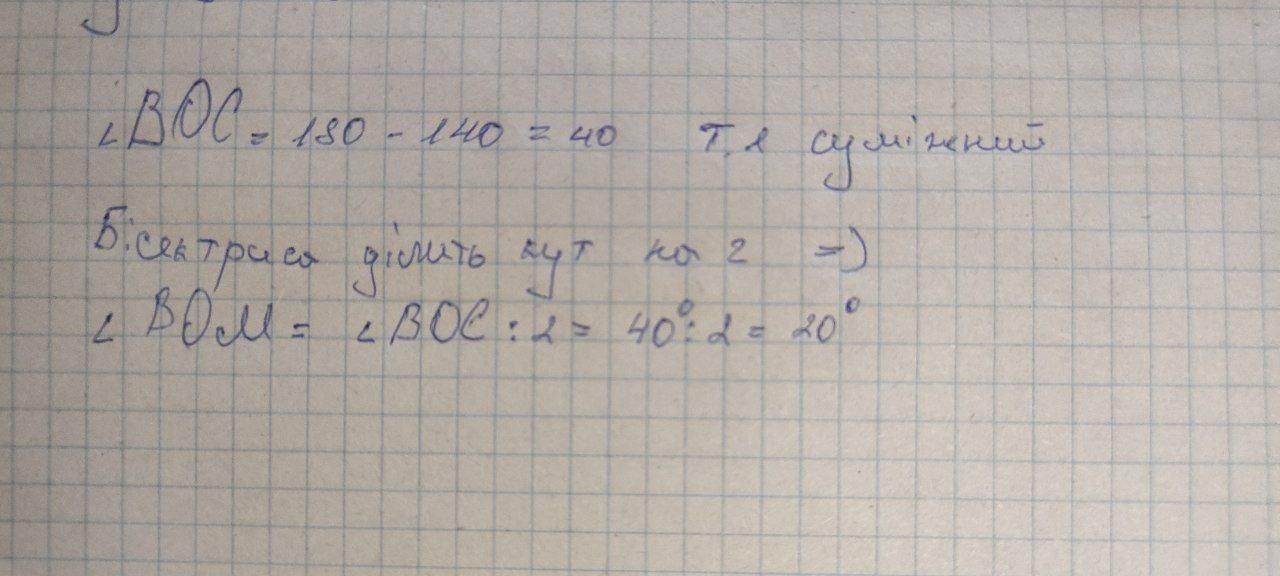 ∠BOC = 180 - 140 = 40 т.я суміжний
Бісектриса ділить кут на 2 =>
∠BOM = ∠BOC : 2 = 40° : 2 = 20°